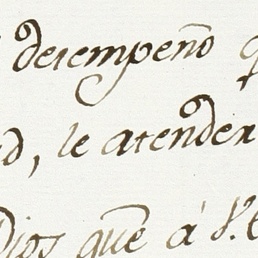 desempeño q
d, le atender
Dios que à V.E